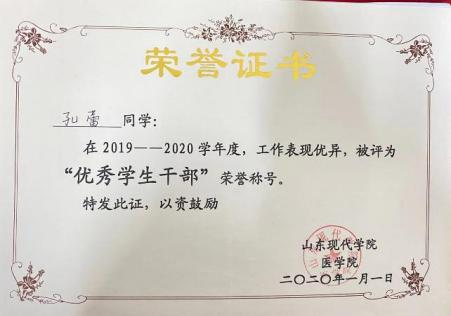 荣誉证书
孔蕾 同学：
在 2019——2020 学年度，工作表现优异，被评为
“优秀学生干部”荣誉称号。
特发此证，以资鼓励
山东现代学院
医学院
二〇二〇年一月一日